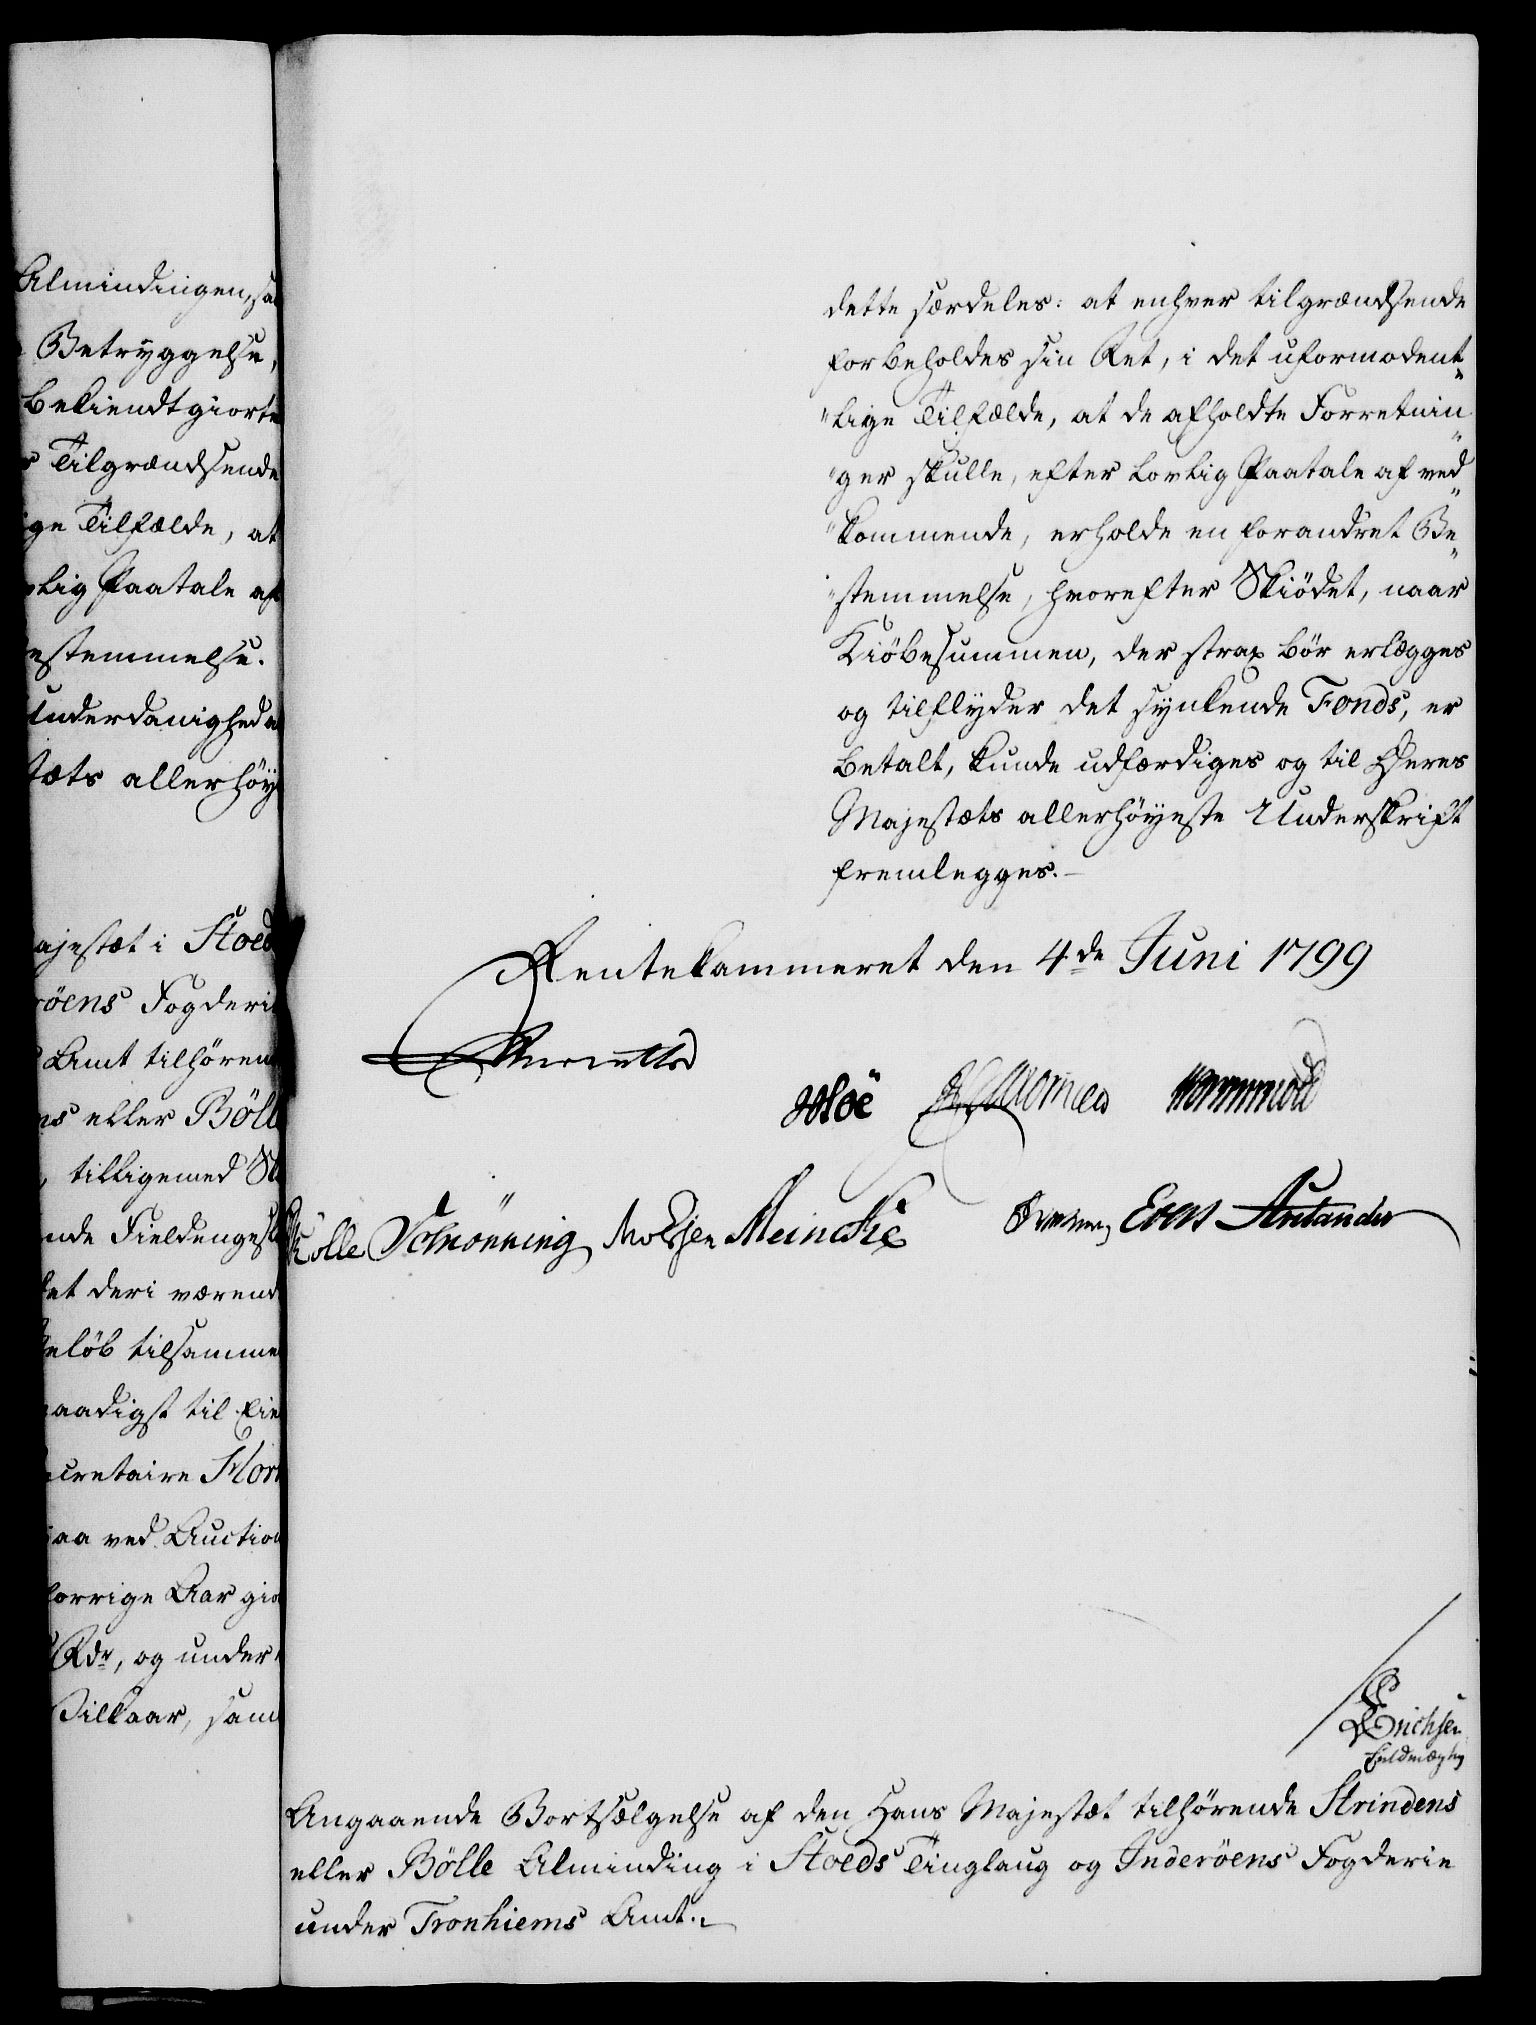 Almindingen, sa
Betryggelse,
bekiendtgiorte
Tilgrændsende
ge Tilfælde, at
lig Paatale af
estemmelse.
Underdanighed
tæts allerhöy
ajestæt i Stoed
röens Fogderi
Amt tilhören
ns eller Bölle
, tilligemed
nde Fieldenges
et deri værend
elöb tilsamme
aadigst til Eie
cretaire Hor
aa ved Auction
forrige Aar gio
Rdr, og under
Vilkaar, sam
dette særdeles: at enhver tilgrændsende
forbeholdes sin Ret, i det uformodent„
„lige Tilfælde, at de afholdte Forretnin„
„ger skulle, efter lovlig Paatale af ved„
„kommende, erholde en forandret Be„
„stemmelse, hvorefter Skiödet, naar
Kiöbesummen, der strax bör erlægges
og tilflyder det synkende Fonds, er
betalt, kunde udfærdiges og til Deres
Majestæts allerhöyeste Underskrift
fremlegges.–
Rentekammeret den 4de Juni 1799
Hoë Wormskiold
Rolle Schrønning Meincke Evers Antander
Erichsen
Fuldmægtig
Angaaende Bortsælgelse af den Hans Majestæt tilhörende Strindens
eller Bölle Alminding i Stoeds Tinglaug og Inderöens Fogderie
under Tronhiems Amt.